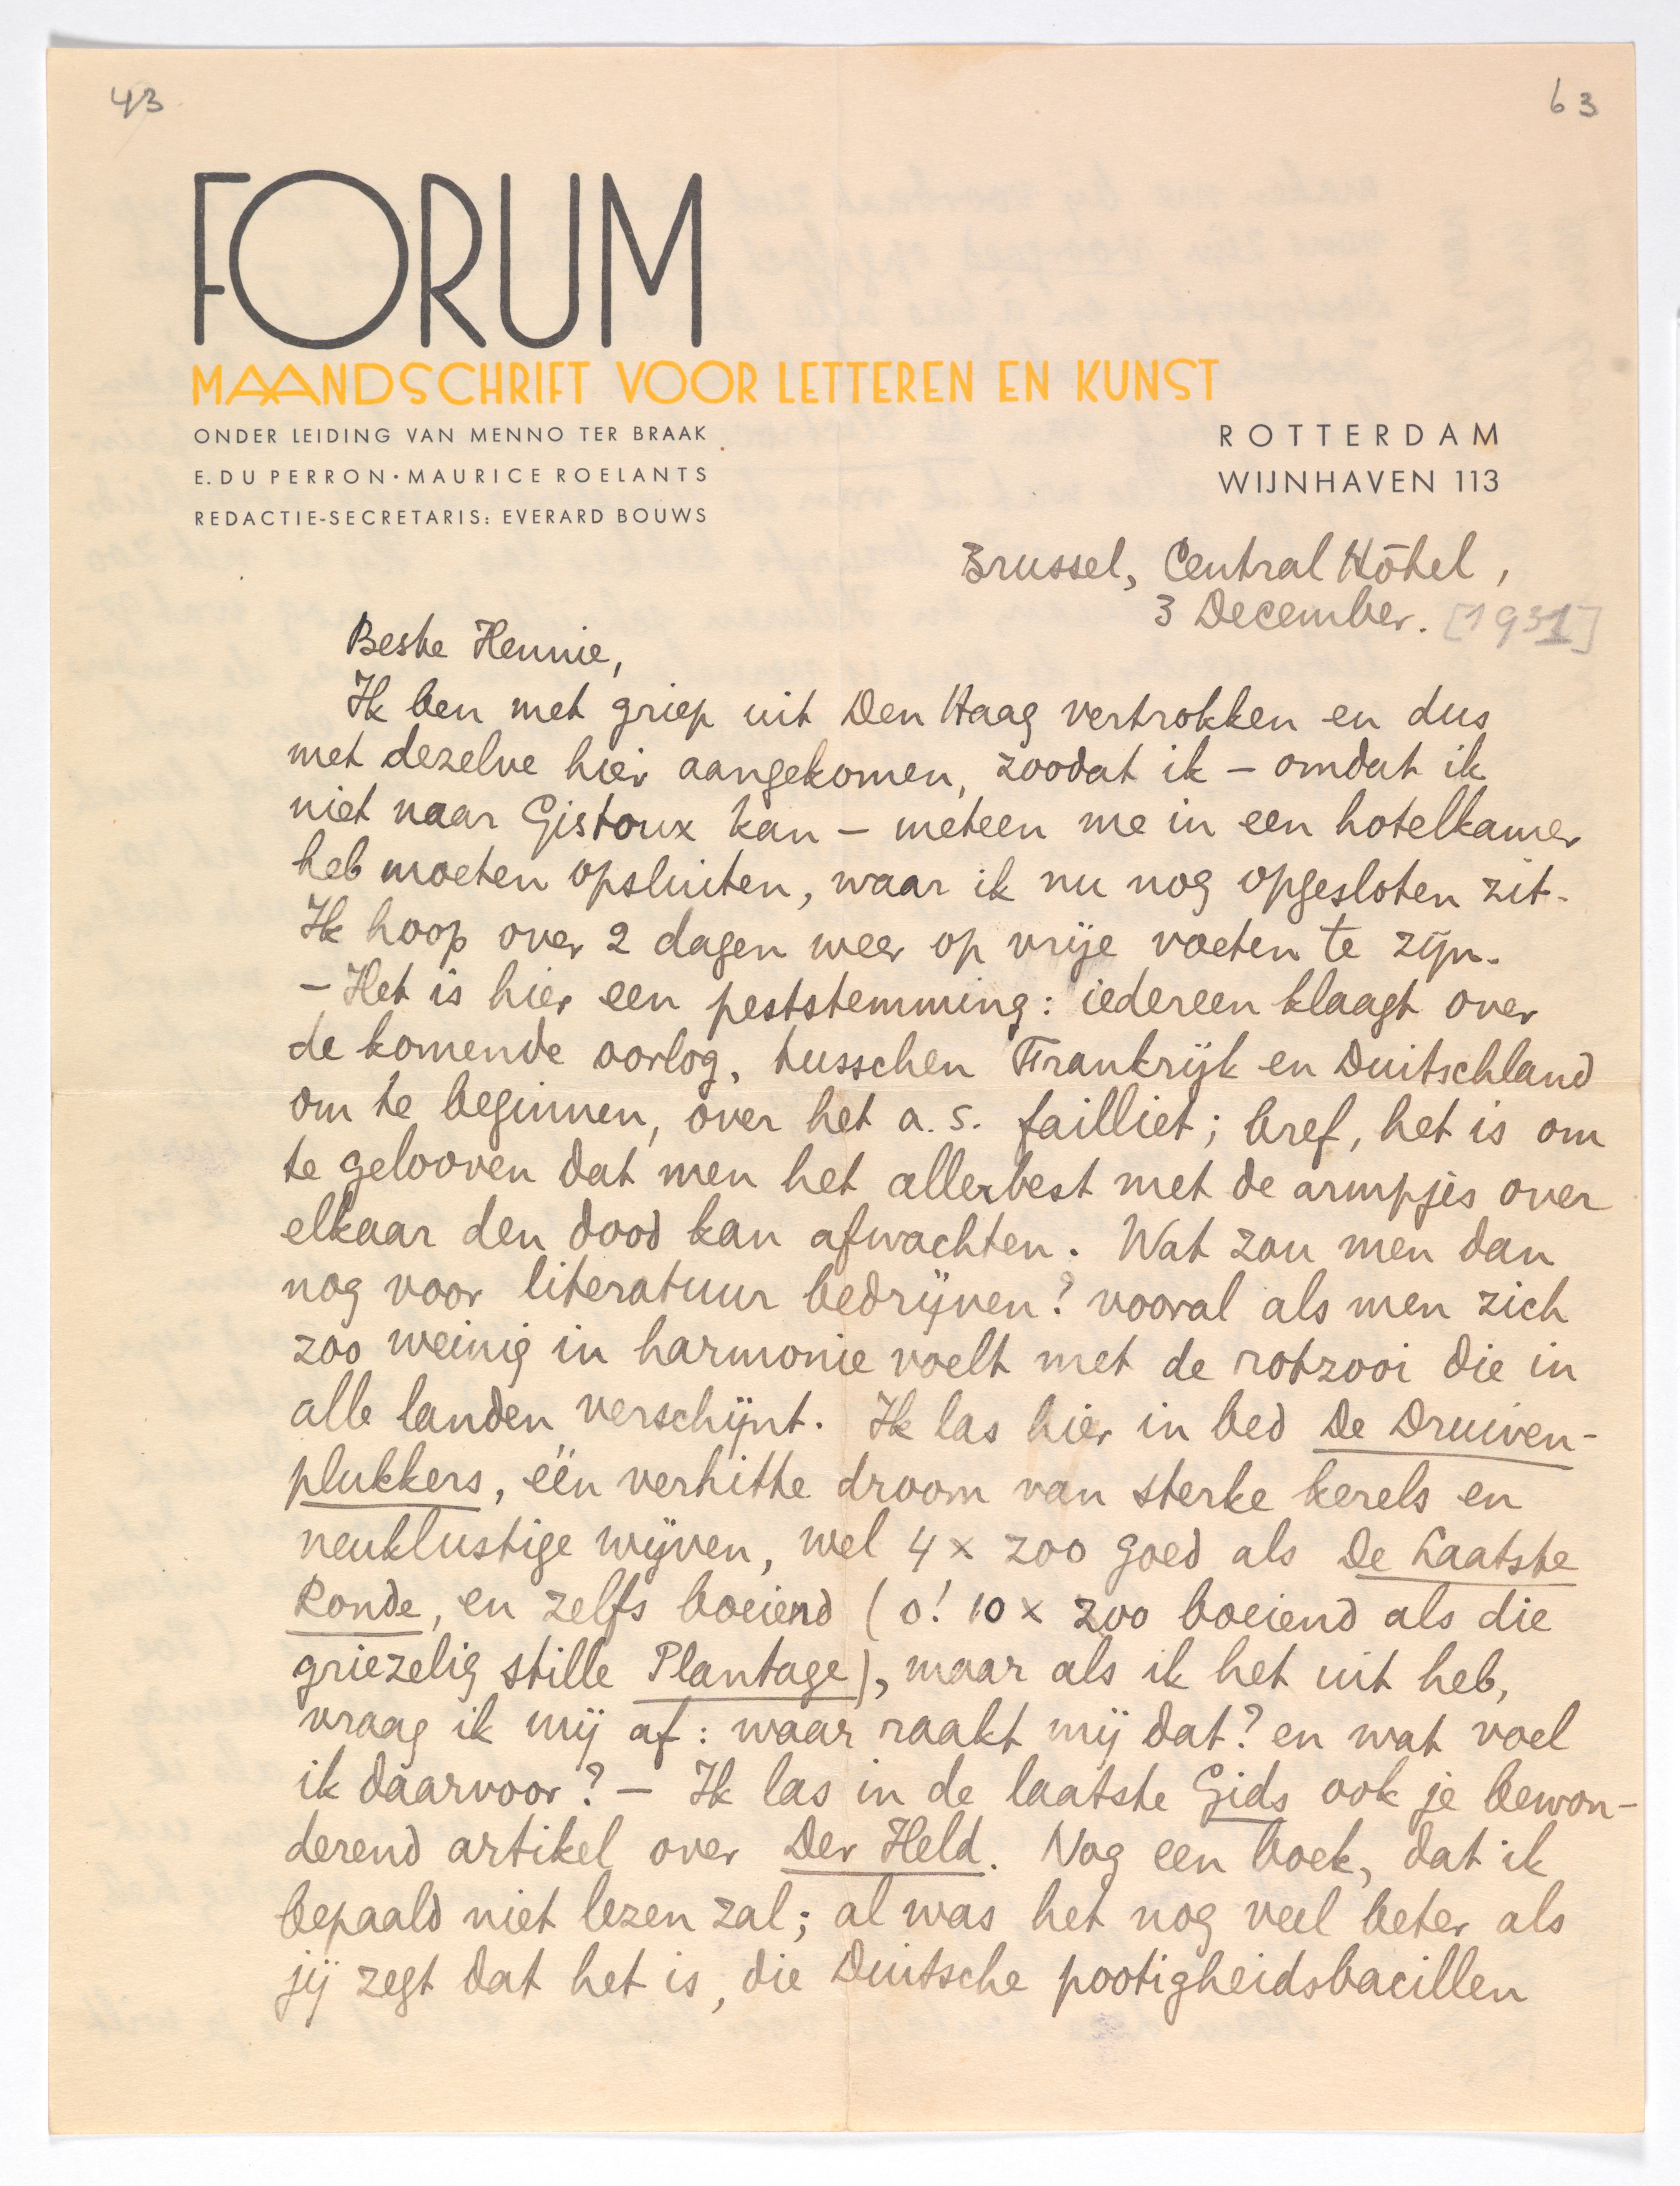 43
63
FORUM
MAANDSCHRIFT VOOR LETTEREN EN KUNST
ONDER LEIDING VAN MENNO TER BRAAK
E. DU PERRON · MAURICE ROELANTS
REDACTIE-SECRETARIS: EVERARD BOUWS
ROTTERDAM
WIJNHAVEN 113
Brussel, Central Hôtel,
3 December. [1931]
Beste Hennie,
Ik ben met griep uit Den Haag vertrokken en dus
met dezelve hier aangekomen, zoodat ik – omdat ik
niet naar Gistoux kan – meteen me in een hotelkamer
heb moeten opsluiten, waar ik nu nog opgesloten zit.
Ik hoop over 2 dagen weer op vrije voeten te zijn.
– Het is hier een peststemming: iedereen klaagt over
de komende oorlog, tusschen Frankrijk en Duitschland
om te beginnen, over het a.s. failliet; bref, het is om
te gelooven dat men het allerbest met de armpjes over
elkaar den dood kan afwachten. Wat zou men dan
nog voor literatuur bedrijven? vooral als men zich
zoo weinig in harmonie voelt met de rotzooi die in
alle landen verschijnt. Ik las hier in bed De Druiven-
plukkers, één verhitte droom van sterke kerels en
neuklustige wijven, wel 4 x zoo goed als De Laatste
Ronde, en zelfs boeiend (o! 10 x zoo boeiend als die
griezelig stille Plantage), maar als ik het uit heb,
vraag ik mij af: waar raakt mij dat? en wat voel
ik daarvoor? – Ik las in de laatste Gids ook je bewon-
derend artikel over Der Held. Nog een boek, dat ik
bepaald niet lezen zal; al was het nog veel beter als
jij zegt dat het is, die Duitsche pootigheidsbacillen